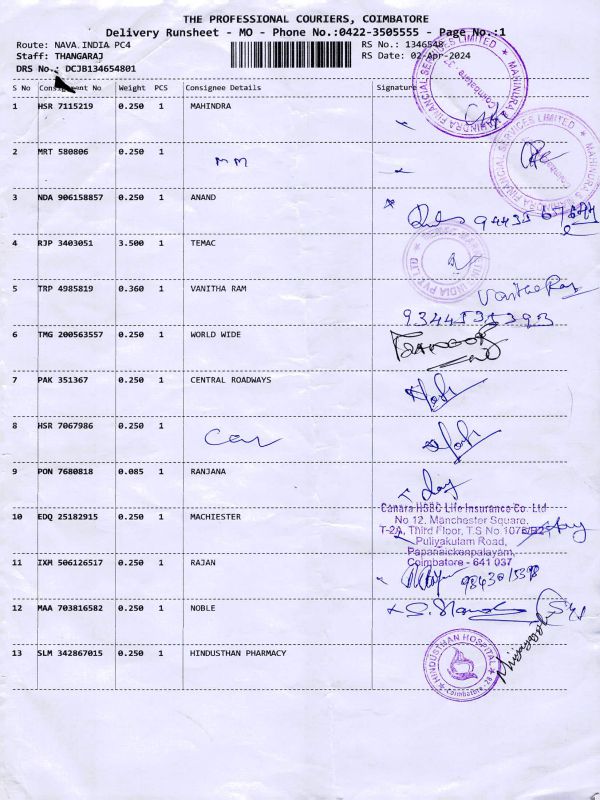 THE PROFESSIONAL COURIERS, COIMBATORE
Delivery Runsheet - MO - Phone No.:0422-3505555 - Page No.:1
Route: NAVA INDIA PC4 RS No.: 1346548
Staff: THANGARAJ RS Date: 02-Apr-2024
DRS No.: DCJB134654801
S No Consignment No Weight PCS Consignee Details Signature
1 HSR 7115219 0.250 1 MAHINDRA
MAHINDRA FINANCIAL SERVICES LIMITED
Coimbatore
2 MRT 580806 0.250 1 MM
MAHINDRA FINANCIAL SERVICES LIMITED
3 NDA 906158857 0.250 1 ANAND
4 RJP 3403051 3.500 1 TEMAC
INDIA PVT LTD
5 TRP 4985819 0.360 1 VANITHA RAM
Vanitha Ram
6 TMG 200563557 0.250 1 WORLD WIDE
7 PAK 351367 0.250 1 CENTRAL ROADWAYS
8 HSR 7067986 0.250 1
9 PON 7680818 0.085 1 RANJANA
10 EDQ 25182915 0.250 1 MACHIESTER
Canara HSBC Life Insurance Co. Ltd
No 12, Manchester Square,
T-2A, Third Floor, T.S No.1076/B2
Puliyakulam Road,
Papanaickenpalayam,
Coimbatore - 641 037
11 IXM 506126517 0.250 1 RAJAN
12 MAA 703816582 0.250 1 NOBLE
13 SLM 342867015 0.250 1 HINDUSTHAN PHARMACY
HINDUSTHAN HOSPITAL
Coimbatore - 28